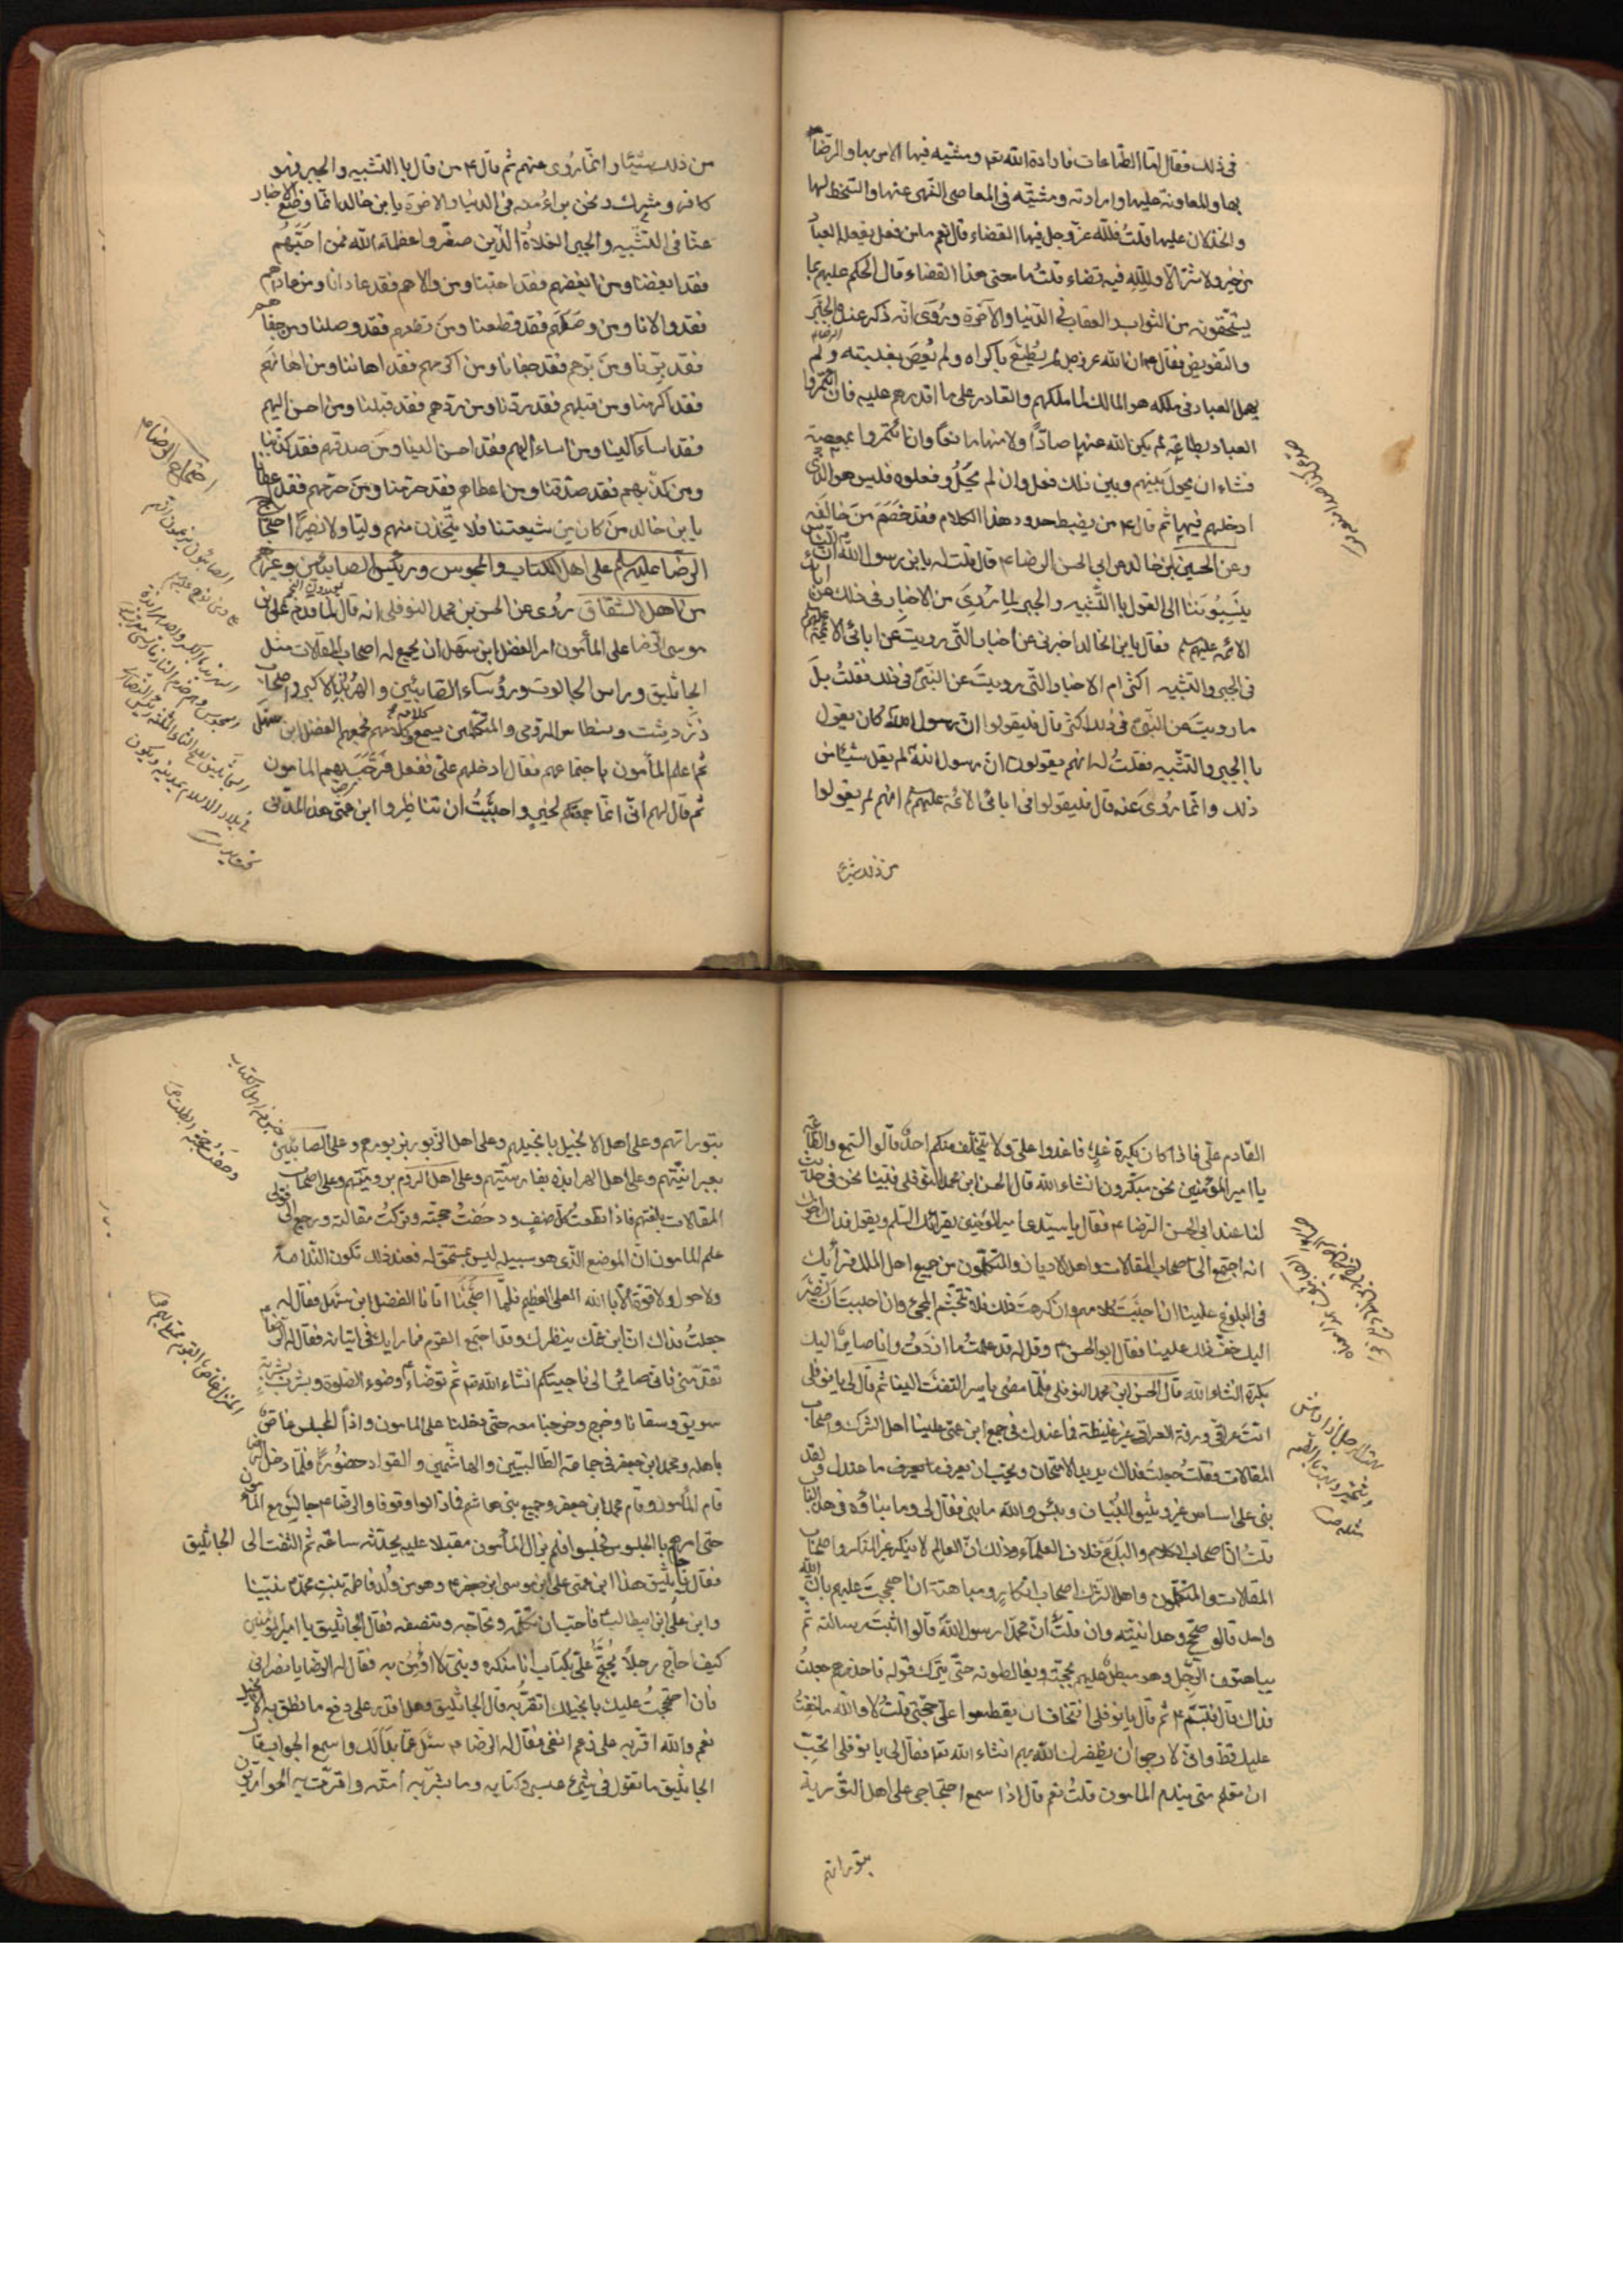 في ذلك فقال امّا الطّاعات فارادة الله تع ومشيّته فيها الامر بها والرّضا
بها والمعاونة عليها وارادته ومشيّته في المعاصي النّهى عنها والسّخط لها
والخذلان عليها قلتُ فللّه عزّ وجل فيها القضاء قال نعم ما من فعل يفعله العباد
من خير ولا شرّ الّا وللّه فيه قضاء قلتُ ما معنى هذا القضاء قال الحكم عليهم بما
يستحقّونه من الثواب والعقاب في الدّنيا والآخرة ورُوىَ انّه ذكر عنده الجبر
والتفويض فقال ان الله عزّ وجل لم يُطَعْ باكراه ولم يُعصَ بغلبة ولم
يهمل العباد في ملكه هو المالك لما ملكهم والقادر على ما اقدرهم عليه فان ائتمروا
العباد بطاعة لم يكن الله عنها صادّاً ولا منها مانعاً وان ائتمروا بمعصية
فشاء ان يحول بينهم وبين ذلك فعل وان لم يحل وفعلوه فليس هو الّذي
ادخلهم فيها ثم قال ع من يضبط حدود هذا الكلام فقد خَصَمَ مَن خالفه
وعن الحسين بن خالد عن ابي الحسن الرضا ع قال قلت له يا بن رسول الله انّ النّاس
يَنْسِبُونَنا الى القول باالتّشبيه والجبر لما رُوِىَ من الاخبار في ذلك عن اباءك
الائمّه عليهم فقال يا بن خالد اخبرني عن اخبار التّي رويتَ عن ابائي الائمّة عليهم
في الجبر والتشبيه اكثر ام الاخبار التّي رويتَ عن النّبيّ في ذلك فقلتُ بل
ما رويتَ عن النّبيّ في ذلك اكثر قال فليقولوا انّ رسول الله كان يقول
باالجبر والتشبيه فقلتُ له انهم يقولون انّ رسول الله لم يقل شيئا من
ذلك وانّما رُوىَ عنه قال فليقولوا في ابائي الائمّة عليهم انهم لم يقولوا
من ذلك شيئا
من ذلك شيئا وانّما رُوى عنهم ثم قال ع من قال باالتشبيه والجبر فهو
كافر ومشرك ونحن براءُ منه في الدّنيا والاخرة يا بن خالد انّما وضع الاخبار
عنّا في التّشبيه والجبر الغلاةُ الّذين صغّروا عظمة الله فمن احَبَّهُم
فقد ابغضنا ومن ابغضهم فقد احبّنا ومن والاهم فقد عادانا ومن عاداهم
فقد والانا ومن وصلهم فقد قطعنا ومن قطعهم فقد وصلنا ومن جفاهم
فقد برّنا ومن برّهم فقد جفانا ومن اكرمهم فقد اهاننا ومن اهانهم
فقد اكرمنا ومن قبلهم فقد ردّنا ومن ردّهم فقد قبلنا ومن احسن اليهم
فقد اساء الينا ومن اساء اليهم فقد احسن الينا ومن صدقهم فقد كذّبنا
ومن كذّبهم فقد صدّقنا ومن اعطاهم فقد حرمنا ومن حرمهم فقد اعطانا
يا بن خالد مَن كان من شيعتنا فلا يتّخذن منهم وليّا ولا نصيراً احتجاج
الرّضا عليه على اهل الكتاب والمجوس ورئيس الصابئين وغيرهم
من اهل الشّقاق رُوى عن الحسن بن محمد النوفلى انه قال لما قدم على بن
موسى الرّضا على المأمون امر الفضل ابن سَهَل ان يجمع له اصحاب المقالات مثل
الجاثليق وراس الجالوت ورؤساء الصّابئين والهربذ الاكبر واصحاب
زرَدهِشت ونسطاس الرّومى والمتكلّمين ليسمع كلامه وكلامهم فجمعهم الفضل ابن سهل
ثم اعلم المأمون باجتماعهم فقال ادخلهم علىّ ففعل فرحّب بهم المأمون
ثم قال لهم انّى انّما جمعتكم لخيرٍ واحببتُ ان تناظروا ابن عمّى هذا المدنى
احتجاج الرضا ع
القادم علىّ فاذا كان بكرة غدٍ فاغدوا علىّ ولا يتخلّف منكم احدٌ قالوا السّمع والطّاعة
يا امير المؤمنين نحن مبكّرون انشاء الله قال الحسن ابن محمد النوفلى فبينا نحن في حديث
لنا عند ابى الحسن الرّضا ع فقال يا سيّدى انّ امير المؤمنين يقرئك السّلم ويقول فداك اخوك
انه اجتمع الىّ اصحاب المقالات واهل الاديان والمتكلّمون من جميع اهل الملل فرأيك
في البلوغ علينا ان احببت كلامهم وان كرهت ذلك فلا تتجشّم المجئ وان احببت ان نصير
اليك خفّ ذلك علينا فقال ابو الحسن ع وقل له قد علمتُ ما اردتَ وانا صاير اليك
بكرة انشاء الله قال الحسن ابن محمد النوفلى فلمّا مضى ياسر التفتَ الينا ثم قال لى يا نوفلى
انتَ عراقى ورقّة العراقى غير غليظة فما عندك في جمع ابن عمّى علينا اهل الشّرك واصحاب
المقالات فقلتُ جعلتُ فداك يريد الامتحان ويحبّ ان يعرف ما عندك ولقد
بنى على اساس غير وثيق البُنيان وبئس والله ما بنى فقال لى وما بناؤه في هذا الباب
قلتُ انّ اصحاب الكلام والبدَعَ خلاف العلماء وذلك انّ العالم لا ينكر غير المنكر واصحاب
المقالات والمتكلّمون واهل الشّرك اصحاب انكارٍ ومباهتة ان احتججتَ عليهم بان الله
واحد قالو صحّح وحدانيّته وان قلتُ انّ محمّداً رسول الله قالوا اثبتَ رسالته ثم
يباهتون الرّجُل وهو مبطل عليهم بحجّته ويغالطونه حتّى يترك قوله فاحذرهم جعلتُ
فداك قال فتبسّم ع ثم قال يا نوفلى اتخاف ان يقطعوا علىّ حجّتى قلتُ لا والله ما خفتُ
عليك قطّ وانّى لارجو ان يظفرك الله بهم انشاء الله تع فقال لى يا نوفلى اتحبّ
ان تعلم متى يندم المأمون قلتُ نعم قال اذا سمع احتجاجى على اهل التّورية
بتوراتهم
بتوراتهم وعلى اهل الانجيل بانجيلهم وعلى اهل الزّبور بزبورهم وعلى الصابئين
بعبرانيّتهم وعلى اهل الهرابذه بفارسيّتهم وعلى اهل الرّوم بروميّتهم وعلى اصحاب
المقالات بلغتهم فاذا قطعتُ كلّ صنفٍ ودحضتُ حجّته وترك مقالته ورجع الى قولى
علم المأمون انّ الموضع الّذى هو بسبيله ليس بمستحقّ له فعند ذلك تكون النّدامة
ولا حول ولا قوّة الّا باالله العلىّ العظيم فلمّا اصبَحنَا اتانا الفضل ابن سهل فقال له
جعلتُ فداك انّ ابن عمّك ينظرك وقد اجتمع القوم فما رايك في اتيانه فقال له الرّضا ع
تقدّمنى فانّى صاير الى ناحيتكم انشاء الله تع ثم توضّاء وضوء الصّلوة وشرب شربة
سويق وسقانا وخرج وخرجنا معه حتّى دخلنا على المأمون واذاً المجلس غاصّ
باهله ومحمد ابن جعفر في جماعة الطّالبيّين والهاشميّين والقواد حضُورٌ فلمّا دخل الرضا
قام المأمون وقام محمد ابن جعفر وجميع بنى هاشم فما زالوا وقوفا والرّضا ع جالس مع المأمون
حتى امرهم باالجلوس فجلسوا فلم يزال المأمون مقبلا عليه يحدّثه ساعة ثم التفت الى الجاثليق
فقال يا جاثليق هذا ابن عمّى على ابن موسى ابن جعفر ع وهو من ولد فاطمة بنتِ محمّد نبيّنا
وابن على ابن ابيطالب فاحبّ ان تكلّمه وتحاجّه وتنصفه فقال الجاثليق يا امير المؤمنين
كيف احاجّ رجلاً يحتجّ علىّ بكتاب انا منكره ونبىّ لا اؤمن به فقال له الرّضا يا نصرانى
فان احتججتُ عليك بانجيلك اتقرُّ به قال الجاثليق وهل اقدر على دفع ما نطق به الانجيل
نعم والله اقرّ به على رغم انفى فقال له الرّضا ع سَئل عمّا بدا لك واسمع الجواب قال
الجاثليق ما تقول في نبوّة عيسى وكتابه وما بشّر به امّته واقرّت به الحواريّون